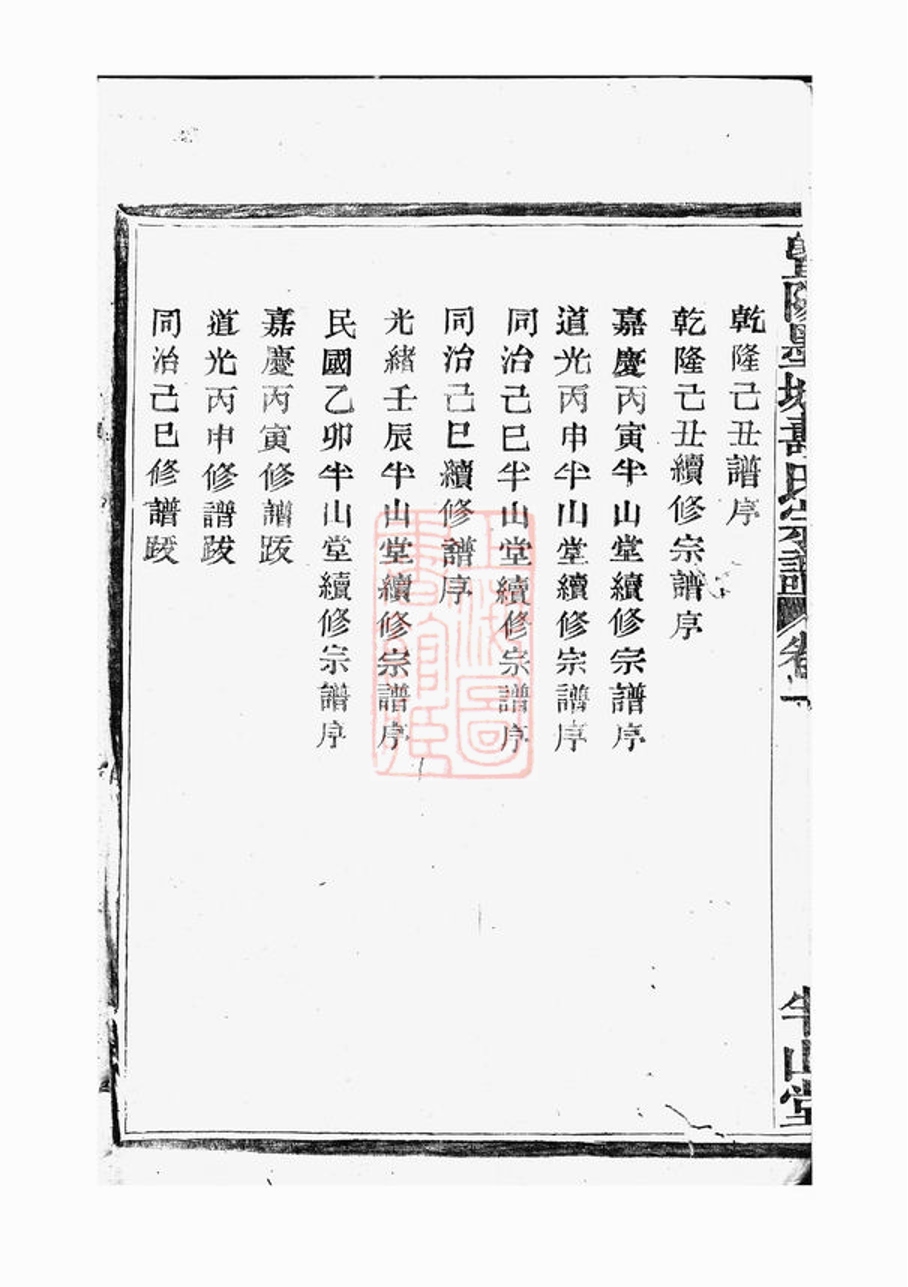 暨陽墨城壽氏宗譜 卷一
半山堂
乾隆己丑譜序
乾隆己丑續修宗譜序
嘉慶丙寅半山堂續修宗譜序
道光丙申半山堂續修宗譜序
同治己巳半山堂續修宗譜序
同治己巳續修譜序
光緒壬辰半山堂續修宗譜序
民國乙卯半山堂續修宗譜序
嘉慶丙寅修譜跋
道光丙申修譜跋
同治己巳修譜跋
上海圖
書館藏